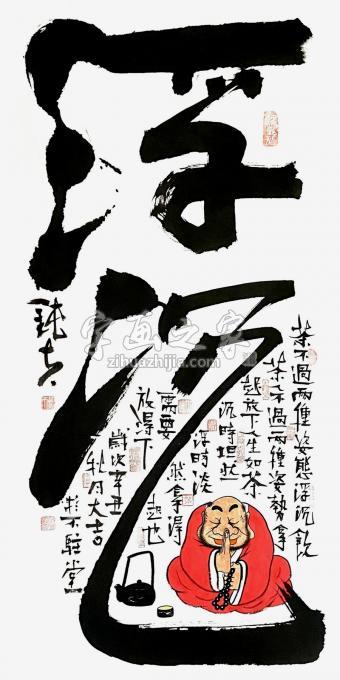 浮沉
茶不過兩種姿態浮沉飲
茶不過兩種姿勢拿
起放下人生如茶
沉時坦然
浮時淡
然拿得
起也
需要
放得下
歲次辛丑
秋月大吉
字画之家
zihuazhijia.com